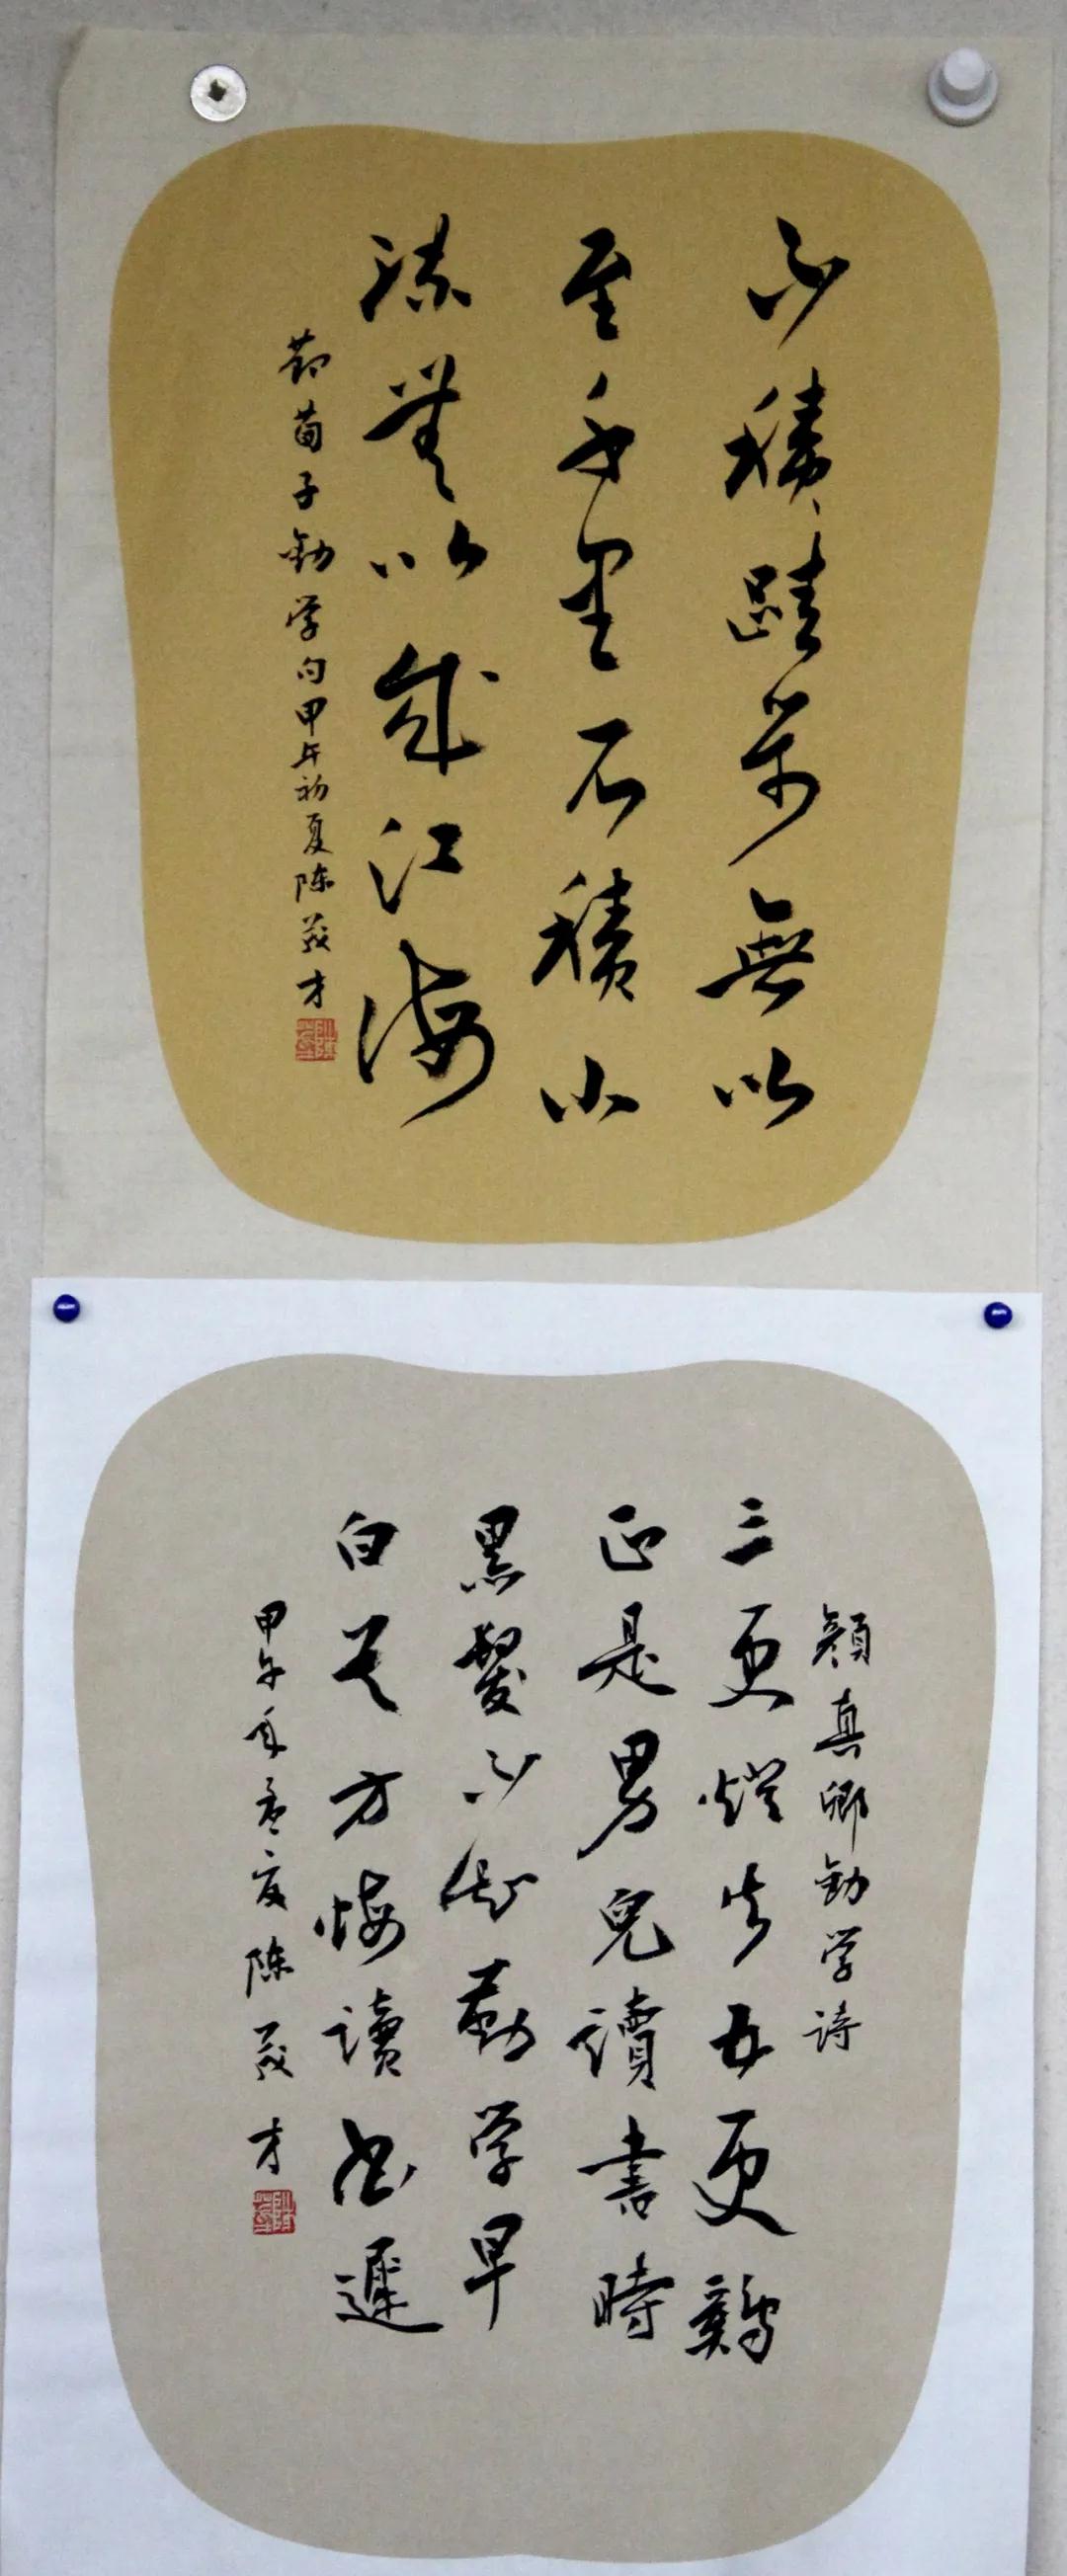 不積跬步無以
至千里不積小
流無以成江海
节荀子勸学句甲午初夏陈茂才
顏真卿勸学诗
三更燈火五更鷄
正是男兒讀書時
黑髮不知勤学早
白首方悔讀书遲
甲午年孟夏陈茂才